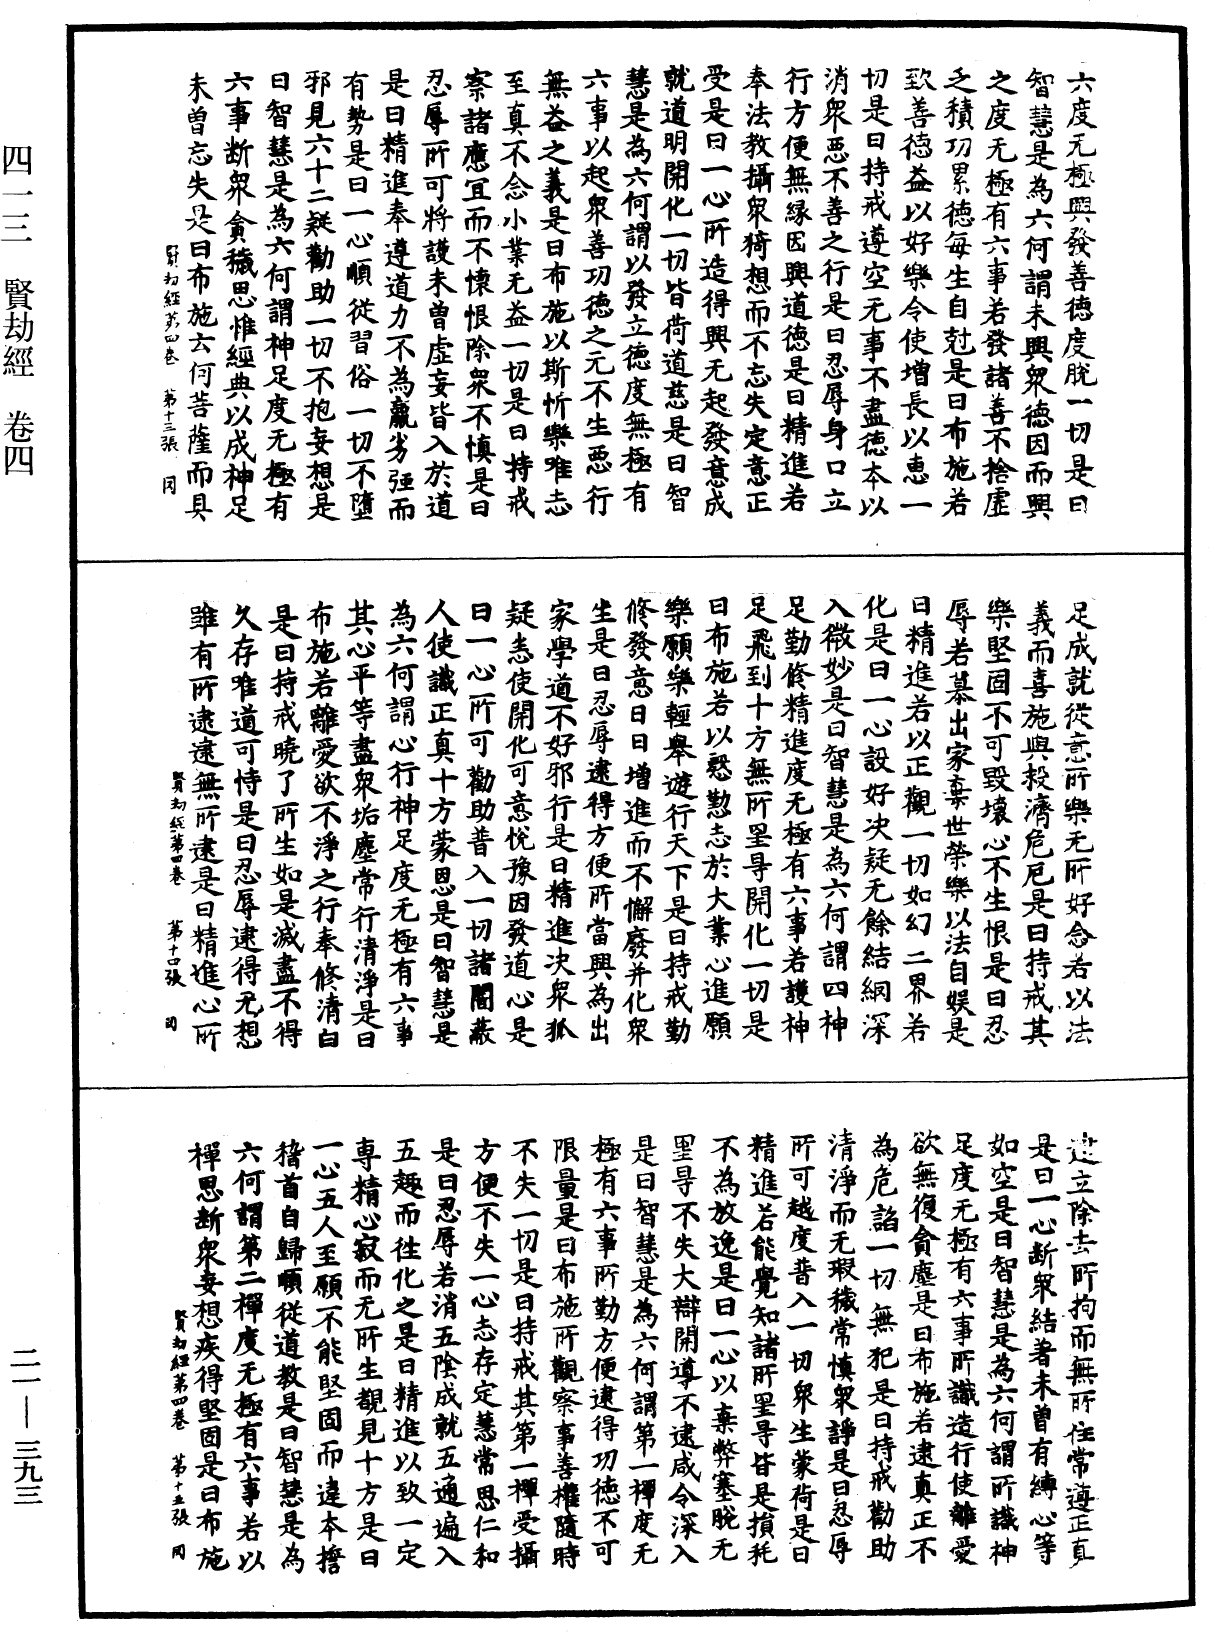 四一三 賢劫經 卷四
六度无極興發善德度脫一切是曰
智慧是為六何謂未興衆德因而興
之度无極有六事若發諸善不捨虛
乏積功累德每生自尅是曰布施若
致善德益以好樂令使增長以惠一
切是曰持戒遵空无事不盡德本以
消衆惡不善之行是曰忍辱身口立
行方便無緣因興道德是曰精進若
奉法教攝衆猗想而不忘失定意正
受是曰一心所造得興无起發意成
就道明開化一切皆荷道慈是曰智
慧是為六何謂以發立德度無極有
六事以起衆善功德之元不生惡行
無益之義是曰布施以斯忻樂唯志
至真不念小業无益一切是曰持戒
察諸應宜而不懷恨除衆不慎是曰
忍辱所可將護未曾虛妄皆入於道
是曰精進奉遵道力不為羸劣強而
有勢是曰一心順從習俗一切不墮
邪見六十二疑勸助一切不抱妄想是
曰智慧是為六何謂神足度无極有
六事斷衆貪穢思惟經典以成神足
未曾忘失是曰布施云何菩薩而具
賢劫經第四卷 第十三張 罔
足成就從意所樂无所好念若以法
義而喜施與救濟危厄是曰持戒其
樂堅固不可毀壞心不生恨是曰忍
辱若慕出家棄世榮樂以法自娛是
曰精進若以正觀一切如幻二界若
化是曰一心設好决疑无餘結網深
入微妙是曰智慧是為六何謂四神
足勤修精進度无極有六事若護神
足飛到十方無所罣㝵開化一切是
曰布施若以慇懃志於大業心進願
樂願樂輕舉遊行天下是曰持戒勤
修發意日日增進而不懈廢并化衆
生是曰忍辱逮得方便所當興為出
家學道不好邪行是曰精進决衆狐
疑悉使開化可意悅豫因發道心是
曰一心所可勸助普入一切諸闇蔽
人使識正真十方蒙恩是曰智慧是
為六何謂心行神足度无極有六事
其心平等盡衆垢塵常行清淨是曰
布施若離愛欲不淨之行奉修清白
是曰持戒曉了所生如是滅盡不得
久存唯道可恃是曰忍辱逮得无想
雖有所逮逮無所逮是曰精進心所
賢劫經第四卷 第十四張 罔
建立除去所拘而無所住常遵正真
是曰一心斷衆結著未曾有縛心等
如空是曰智慧是為六何謂所識神
足度无極有六事所識造行使離愛
欲無復貪塵是曰布施若逮真正不
為危諂一切無犯是曰持戒勸助
清淨而无瑕穢常慎衆諍是曰忍辱
所可越度普入一切衆生蒙荷是曰
精進若能覺知諸所罣㝵皆是損耗
不為放逸是曰一心以棄弊塞脫无
罣㝵不失大辯開導不逮咸令深入
是曰智慧是為六何謂第一禪度无
極有六事所勤方便逮得功德不可
限量是曰布施所觀察事善權隨時
不失一切是曰持戒其第一禪受攝
方便不失一心志存定慧常思仁和
是曰忍辱若消五陰成就五通遍入
五趣而往化之是曰精進以致一定
專精心寂而无所生覩見十方是曰
一心五人至願不能堅固而違本誓
稽首自歸順從道教是曰智慧是為
六何謂第二禪度无極有六事若以
禪思斷衆妄想疾得堅固是曰布施
賢劫經第四卷 第十五張 罔
二一—三九三